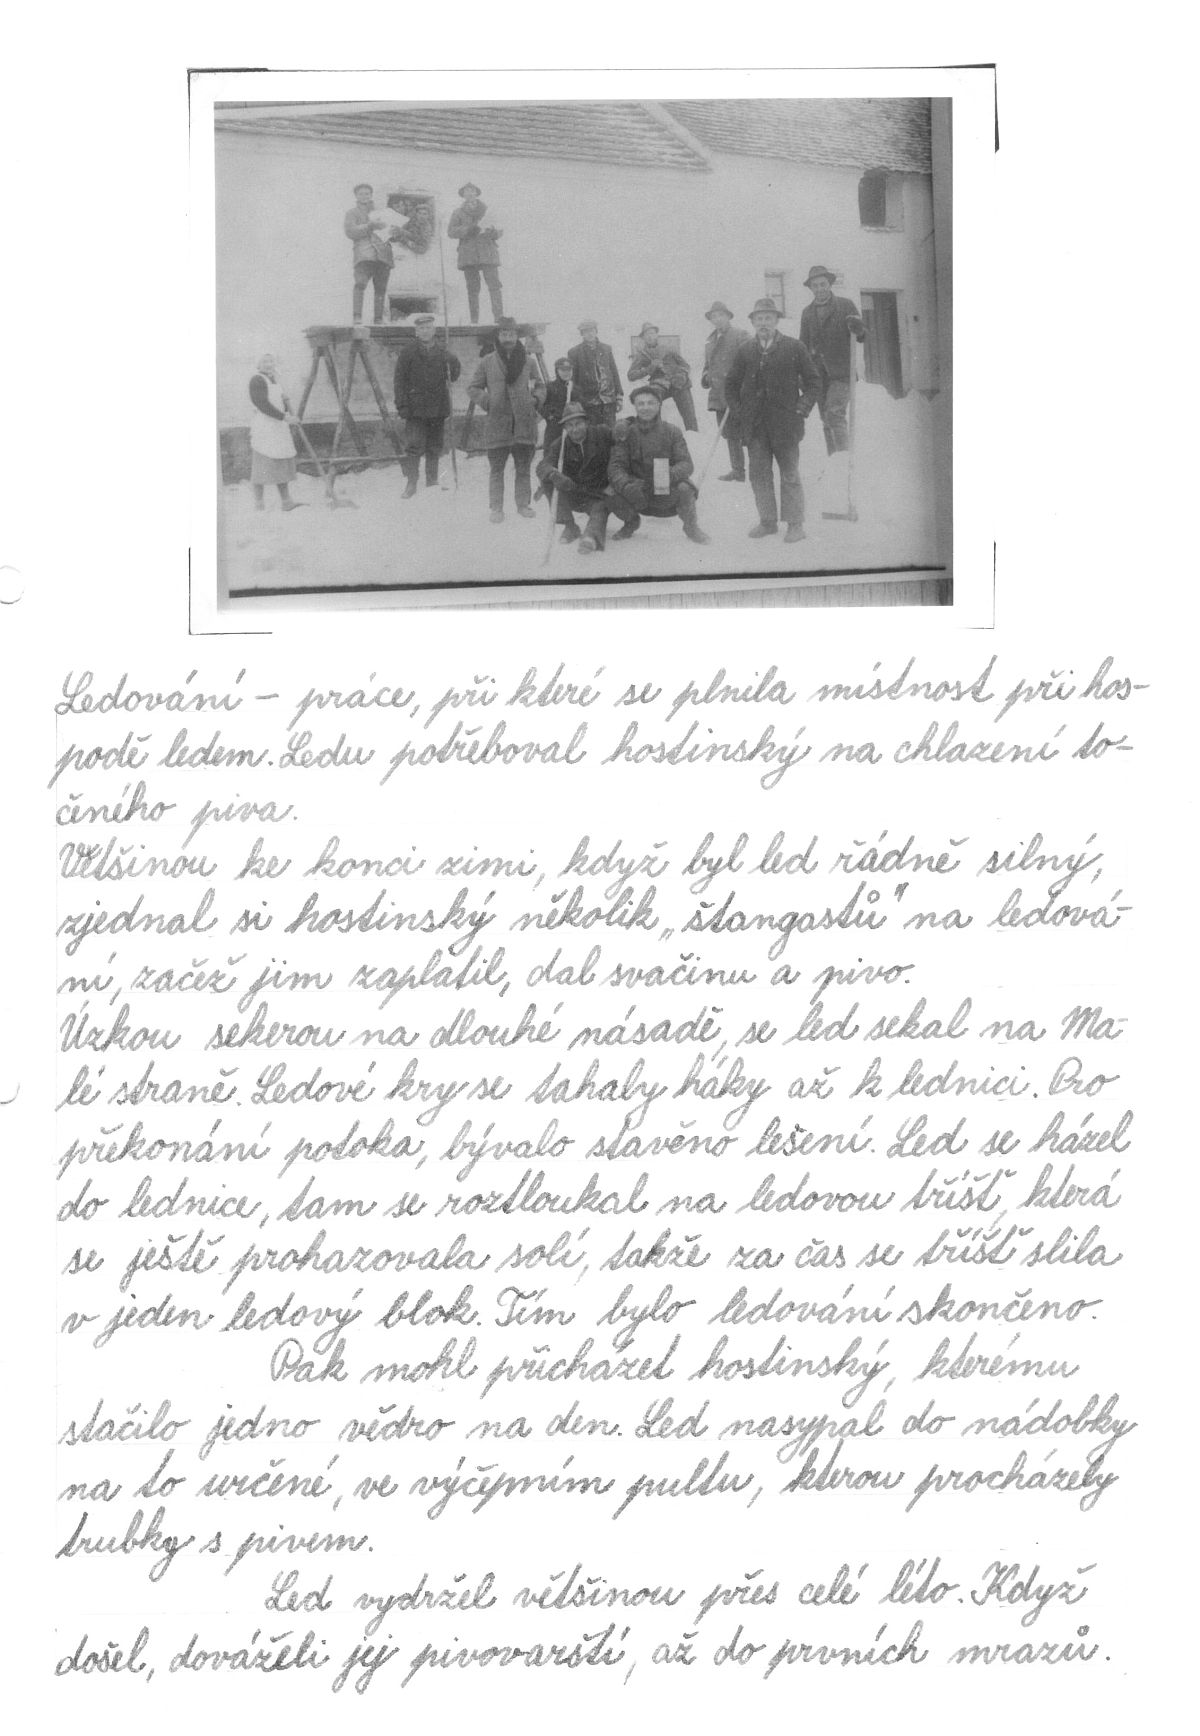 Ledování – práce, při které se plnila místnost při hos-
podě ledem. Ledu potřeboval hostinský na chlazení to-
čeného piva.
Většinou ke konci zimi, když byl led řádně silný,
zjednal si hostinský několik „štangastů" na ledová-
ní, začež jim zaplatil, dal svačinu a pivo.
Úzkou sekerou na dlouhé násadě, se led sekal na Ma-
lé straně. Ledové kry se tahaly háky až k lednici. Pro
překonání potoka, bývalo stavěno lešení. Led se házel
do lednice, tam se roztloukal na ledovou tříšť, která
se ještě prohazovala solí, takže za čas se tříšť slila
v jeden ledový blok. Tím bylo ledování skončeno.
Pak mohl přicházet hostinský, kterému
stačilo jedno vědro na den. Led nasypal do nádobky
na to určené, ve výčepním pultu, kterou procházely
trubky s pivem.
Led vydržel většinou přes celé léto. Když
došel, dováželi jej pivovarští, až do prvních mrazů.